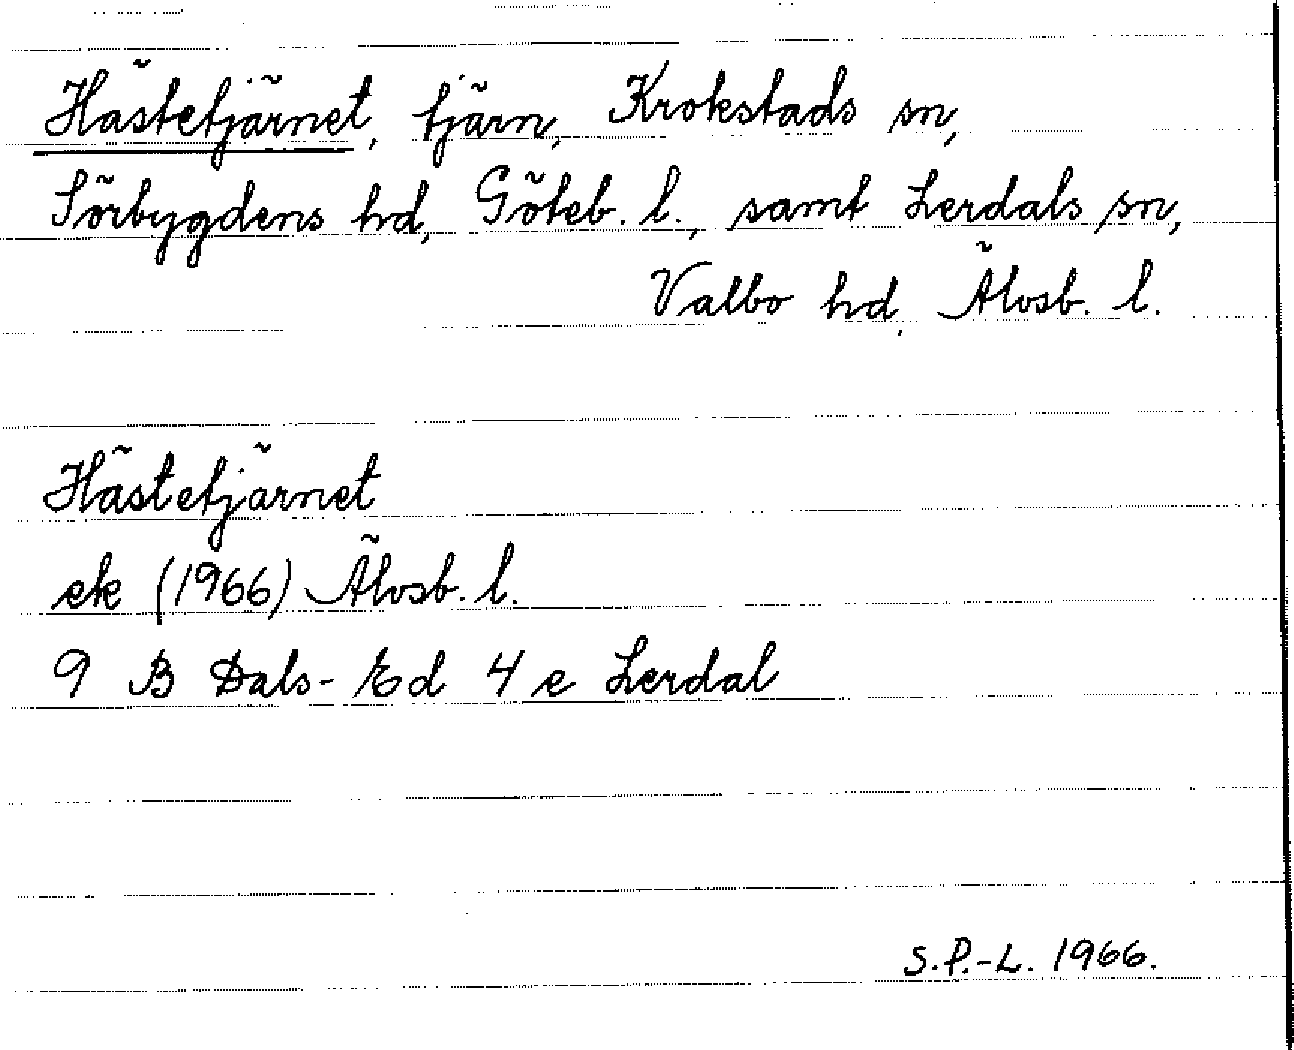 Hästetjärnet, tjärn, Krokstads sn,
Sörbygdens hd, Göteb. l., samt Lerdals sn,
Valbo hd, Älvsb. l.
Hästetjärnet
ek (1966) Älvsb. l.
9 B Dals-Ed 4 e Lerdal
S.P.-L. 1966.